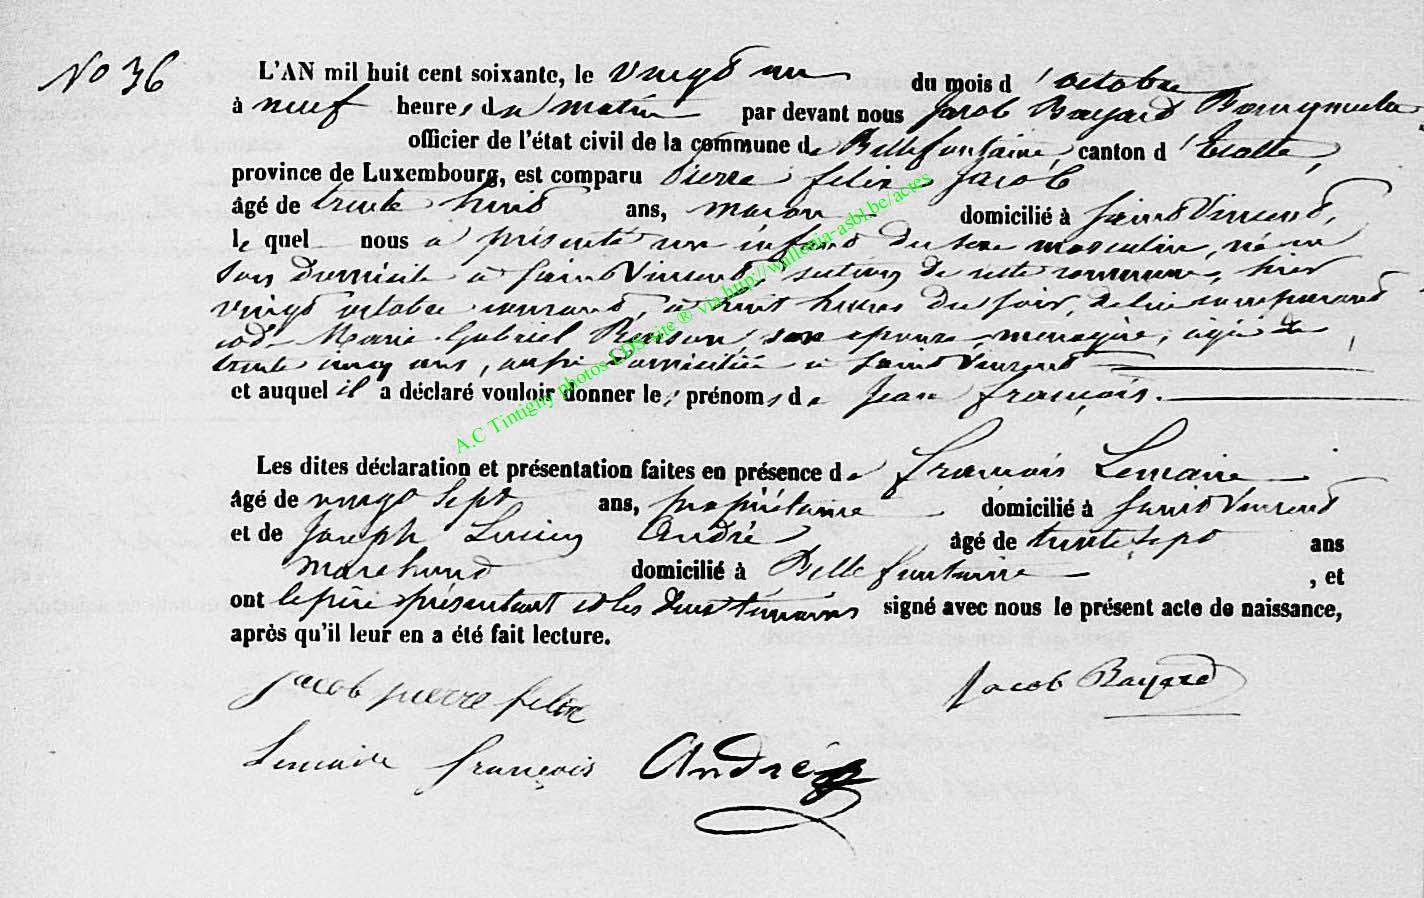 No 36
L'AN mil huit cent soixante, le vingt un du mois d'octobre
à neuf heures du matin par devant nous Jacob Bayard Bourgmestre
officier de l'état civil de la commune de Bellefontaine, canton d'Etalle,
province de Luxembourg, est comparu Pierre felix Jacob
âgé de trente huit ans, maçon domicilié à Saint Vincent,
lequel nous a présenté un enfant du sexe masculin, né en
son domicile à Saint Vincent, section de cette commune, hier
vingt octobre courant, à huit heures du soir, de lui comparant
et de Marie Gabriel son épouse, menagère, agée de
trente cinq ans, aussi domiciliée à Saint Vincent
et auquel il a déclaré vouloir donner les prénoms de Jean François.
Les dites déclaration et présentation faites en présence de françois Lemaire
âgé de vingt sept ans, propriétaire domicilié à Saint Vincent
et de Joseph Lucien André âgé de trente sept ans
marchand domicilié à Bellefontaine , et
ont le père présentant et les deux témoins signé avec nous le présent acte de naissance,
après qu'il leur en a été fait lecture.
Jacob pierre felix Jacob Bayard
Lemaire françois André
A.C Tintigny photos LDS site ® via http://wallonia-asbl.be/actes